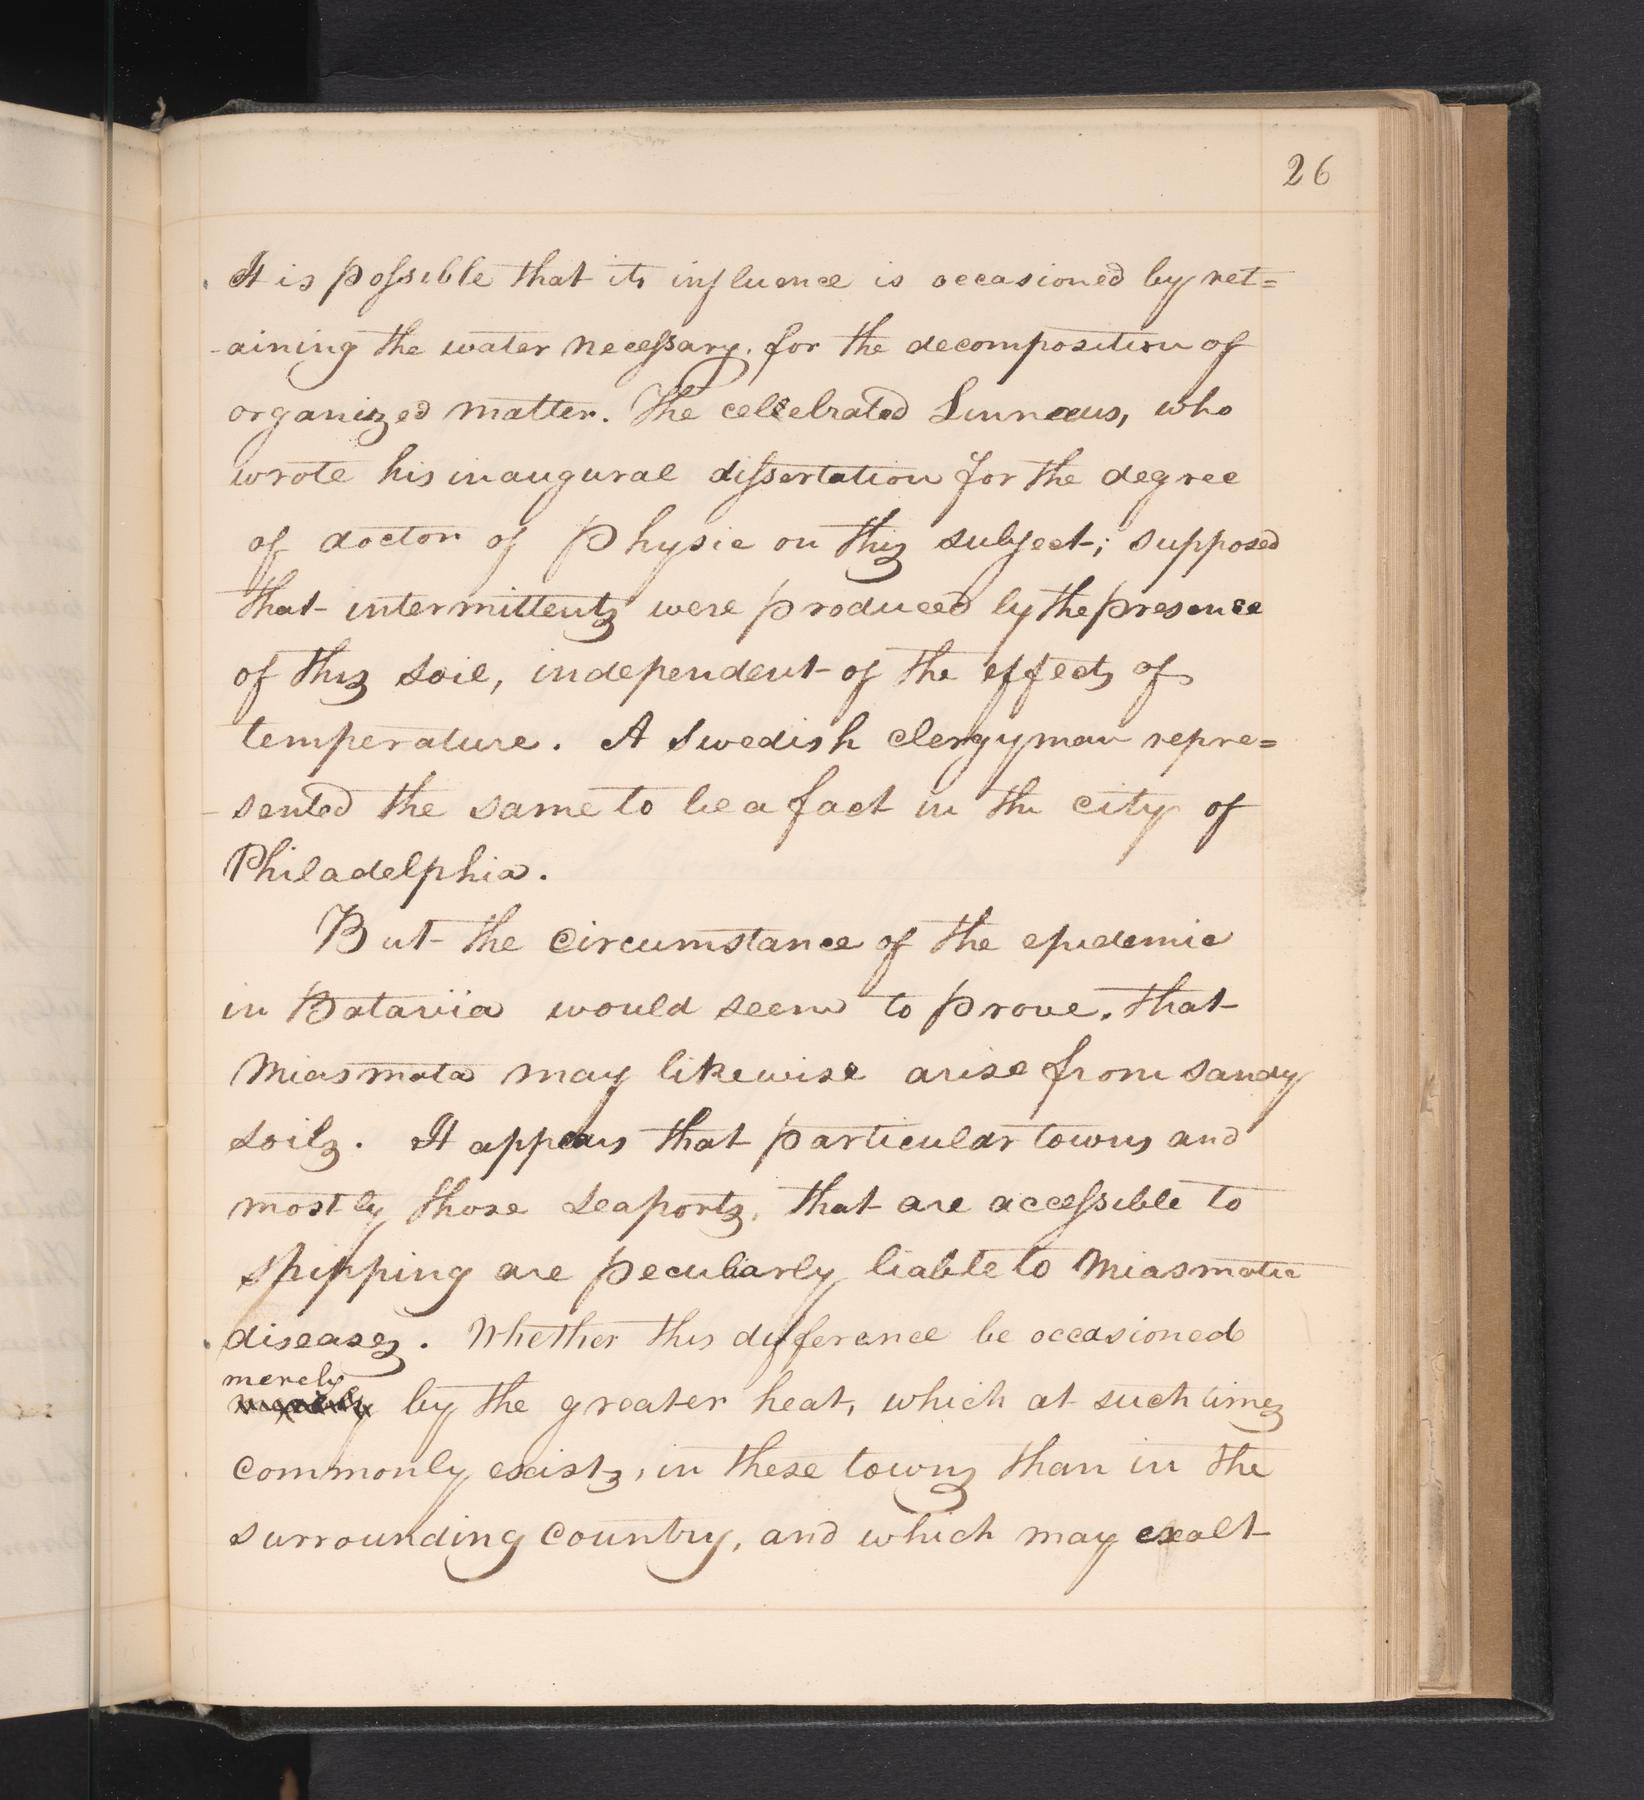 26
It is possible that its influence is occasioned by ret=
-aining the water necessary, for the decomposition of
organized matter. The celebrated Linnaeus, who
wrote his inaugural dissertation for the degree
of doctor of Physic on this subject; supposed
that intermittents were produced by the presence
of this soil, independent of the effects of
temperature. A Swedish Clergyman repre=
-sented the same to be a fact in the city of
Philadelphia.
But the circumstance of the epidemic
in Bataviia would seem to prove, that
Miasmata may likewise arise from sandy
soils. It appears that particular towns and
mostly those seaports, that are accessible to
shipping are peculiarly liable to Miasmatic
diseases. Whether this difference be occasioned
merely
by the greater heat, which at such times
commonly exists, in these towns than in the
surrounding country, and which may exalt